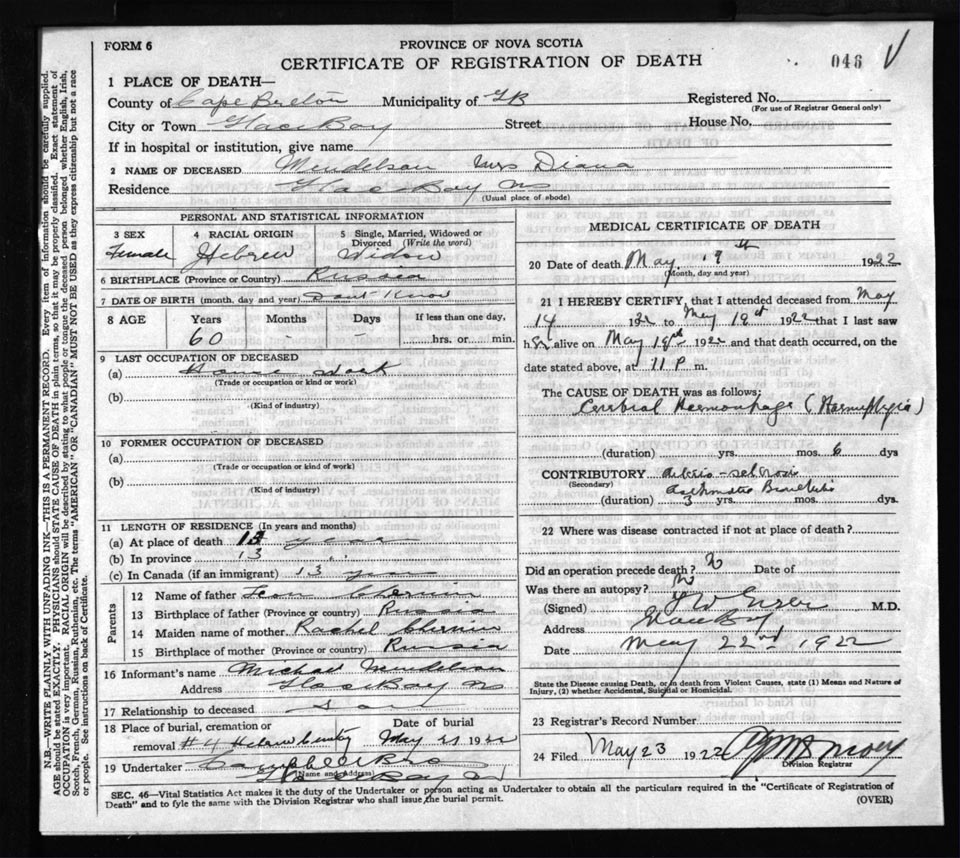 FORM 6
PROVINCE OF NOVA SCOTIA
CERTIFICATE OF REGISTRATION OF DEATH
046 V
1 PLACE OF DEATH—
County of Cape Breton Municipality of GB Registered No.
(For use of Registrar General only)
City or Town Glace Bay Street House No.
If in hospital or institution, give name
2 NAME OF DECEASED Mendelson Mrs Diana
Residence Glace Bay NS
(Usual place of abode)
PERSONAL AND STATISTICAL INFORMATION
3 SEX
Female
4 RACIAL ORIGIN
Hebrew
5 Single, Married, Widowed or Divorced (Write the word)
Widow
6 BIRTHPLACE (Province or Country) Russia
7 DATE OF BIRTH (month, day and year) Dont Know
8 AGE Years Months Days If less than one day,
60 hrs. or min.
9 LAST OCCUPATION OF DECEASED
(a) House Work
(Trade or occupation or kind or work)
(b)
(Kind of industry)
10 FORMER OCCUPATION OF DECEASED
(a)
(Trade or occupation or kind of work)
(b)
(Kind of industry)
11 LENGTH OF RESIDENCE (In years and months)
(a) At place of death 13 years
(b) In province 13 " "
(c) In Canada (if an immigrant) 13 years
Parents
12 Name of father Leon Chernin
13 Birthplace of father (Province or country) Russia
14 Maiden name of mother Rachel Chernin
15 Birthplace of mother (Province or country) Russia
16 Informant's name Michael Mendelson
Address Glace Bay NS
17 Relationship to deceased Son
18 Place of burial, cremation or removal #4 Hebrew Cemetry
Date of burial
May 21 1922
19 Undertaker
(Name and Address)
Glace Bay NS
MEDICAL CERTIFICATE OF DEATH
20 Date of death May 19th 1922
(Month, day and year)
21 I HEREBY CERTIFY, that I attended deceased from May
14 1922 to May 19th 1922 that I last saw
her alive on May 19th 1922 and that death occurred, on the
date stated above, at 11 P. m.
The CAUSE OF DEATH was as follows:
Cerebral Haemorrhage (Haemiplegia)
(duration) yrs. mos. 6 dys
CONTRIBUTORY Arterio-sclerosis
(Secondary) Asthmatic Bronchitis
(duration) 3 yrs. mos. dys.
22 Where was disease contracted if not at place of death?
Did an operation precede death? No Date of
Was there an autopsy? No
(Signed) M.D.
Address Glace Bay
Date May 22nd 1922
State the Disease causing Death, or in death from Violent Causes, state (1) Means and Nature of
Injury, (2) whether Accidental, Suicidal or Homicidal.
23 Registrar's Record Number
24 Filed May 23 1922
Division Registrar
SEC. 46—Vital Statistics Act makes it the duty of the Undertaker or person acting as Undertaker to obtain all the particulars required in the "Certificate of Registration of
Death" and to fyle the same with the Division Registrar who shall issue the burial permit.
(OVER)
N.B.—WRITE PLAINLY WITH UNFADING INK—THIS IS A PERMANENT RECORD. Every item of information should be carefully supplied.
AGE should be stated EXACTLY. PHYSICIANS should STATE CAUSE OF DEATH in plain terms, so that it may be properly classified. Exact statement of
OCCUPATION is very important. RACIAL ORIGIN will be described by stating to what people or tongue the deceased person belonged whether English, Irish,
Scotch, French, German, Russian, Ruthenian, etc. The terms "AMERICAN" OR "CANADIAN" MUST NOT BE USED as they express citizenship but not a race
or people. See instructions on back of Certificate.